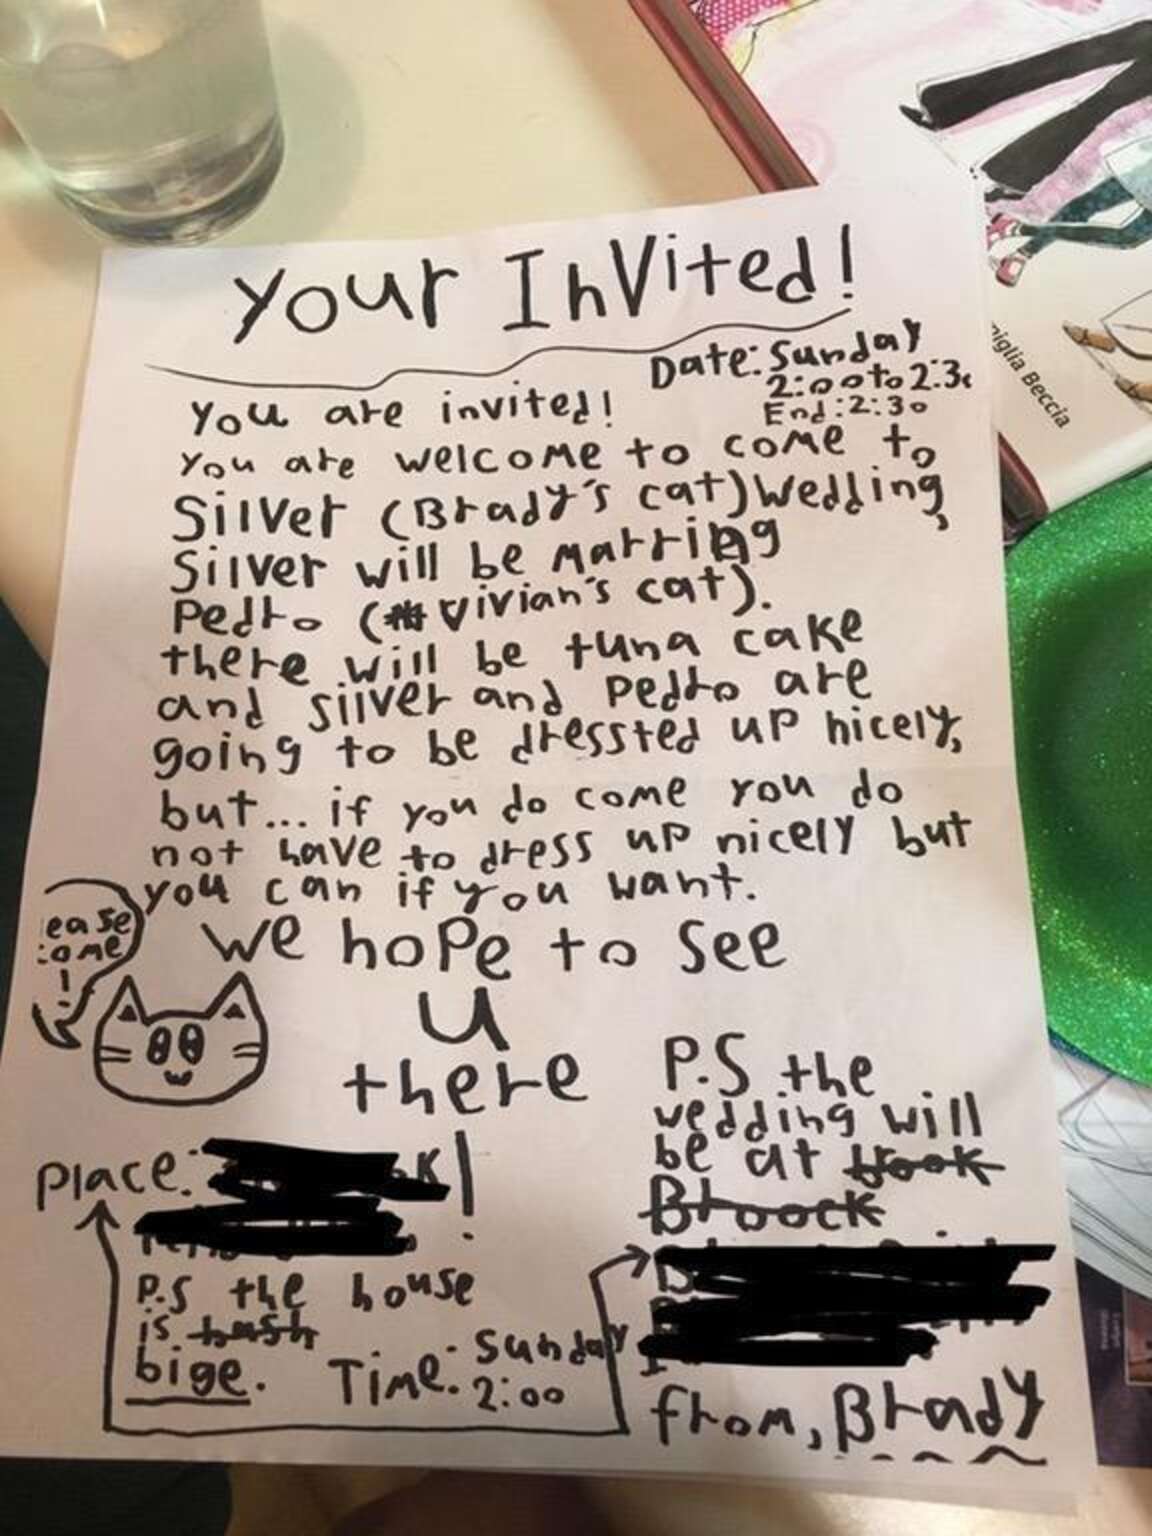 Your Invited!
Date: Sunday
2:00 to 2:30
End: 2:30
You are invited!
You are welcome to come to
Silver (Brady's cat) Wedding,
Silver will be marring
Pedro (Vivian's cat).
there will be tuna cake
and silver and Pedro are
going to be dressted up nicely,
but... if you do come you do
not have to dress up nicely but
you can if you want.
ease
ome
!
We hope to see
u
there
!
Place:
P.S the house
is
bige.
Time: Sunday
2:00
P.S the
wedding will
be at
Broock
from, Brady
niglia Beccia